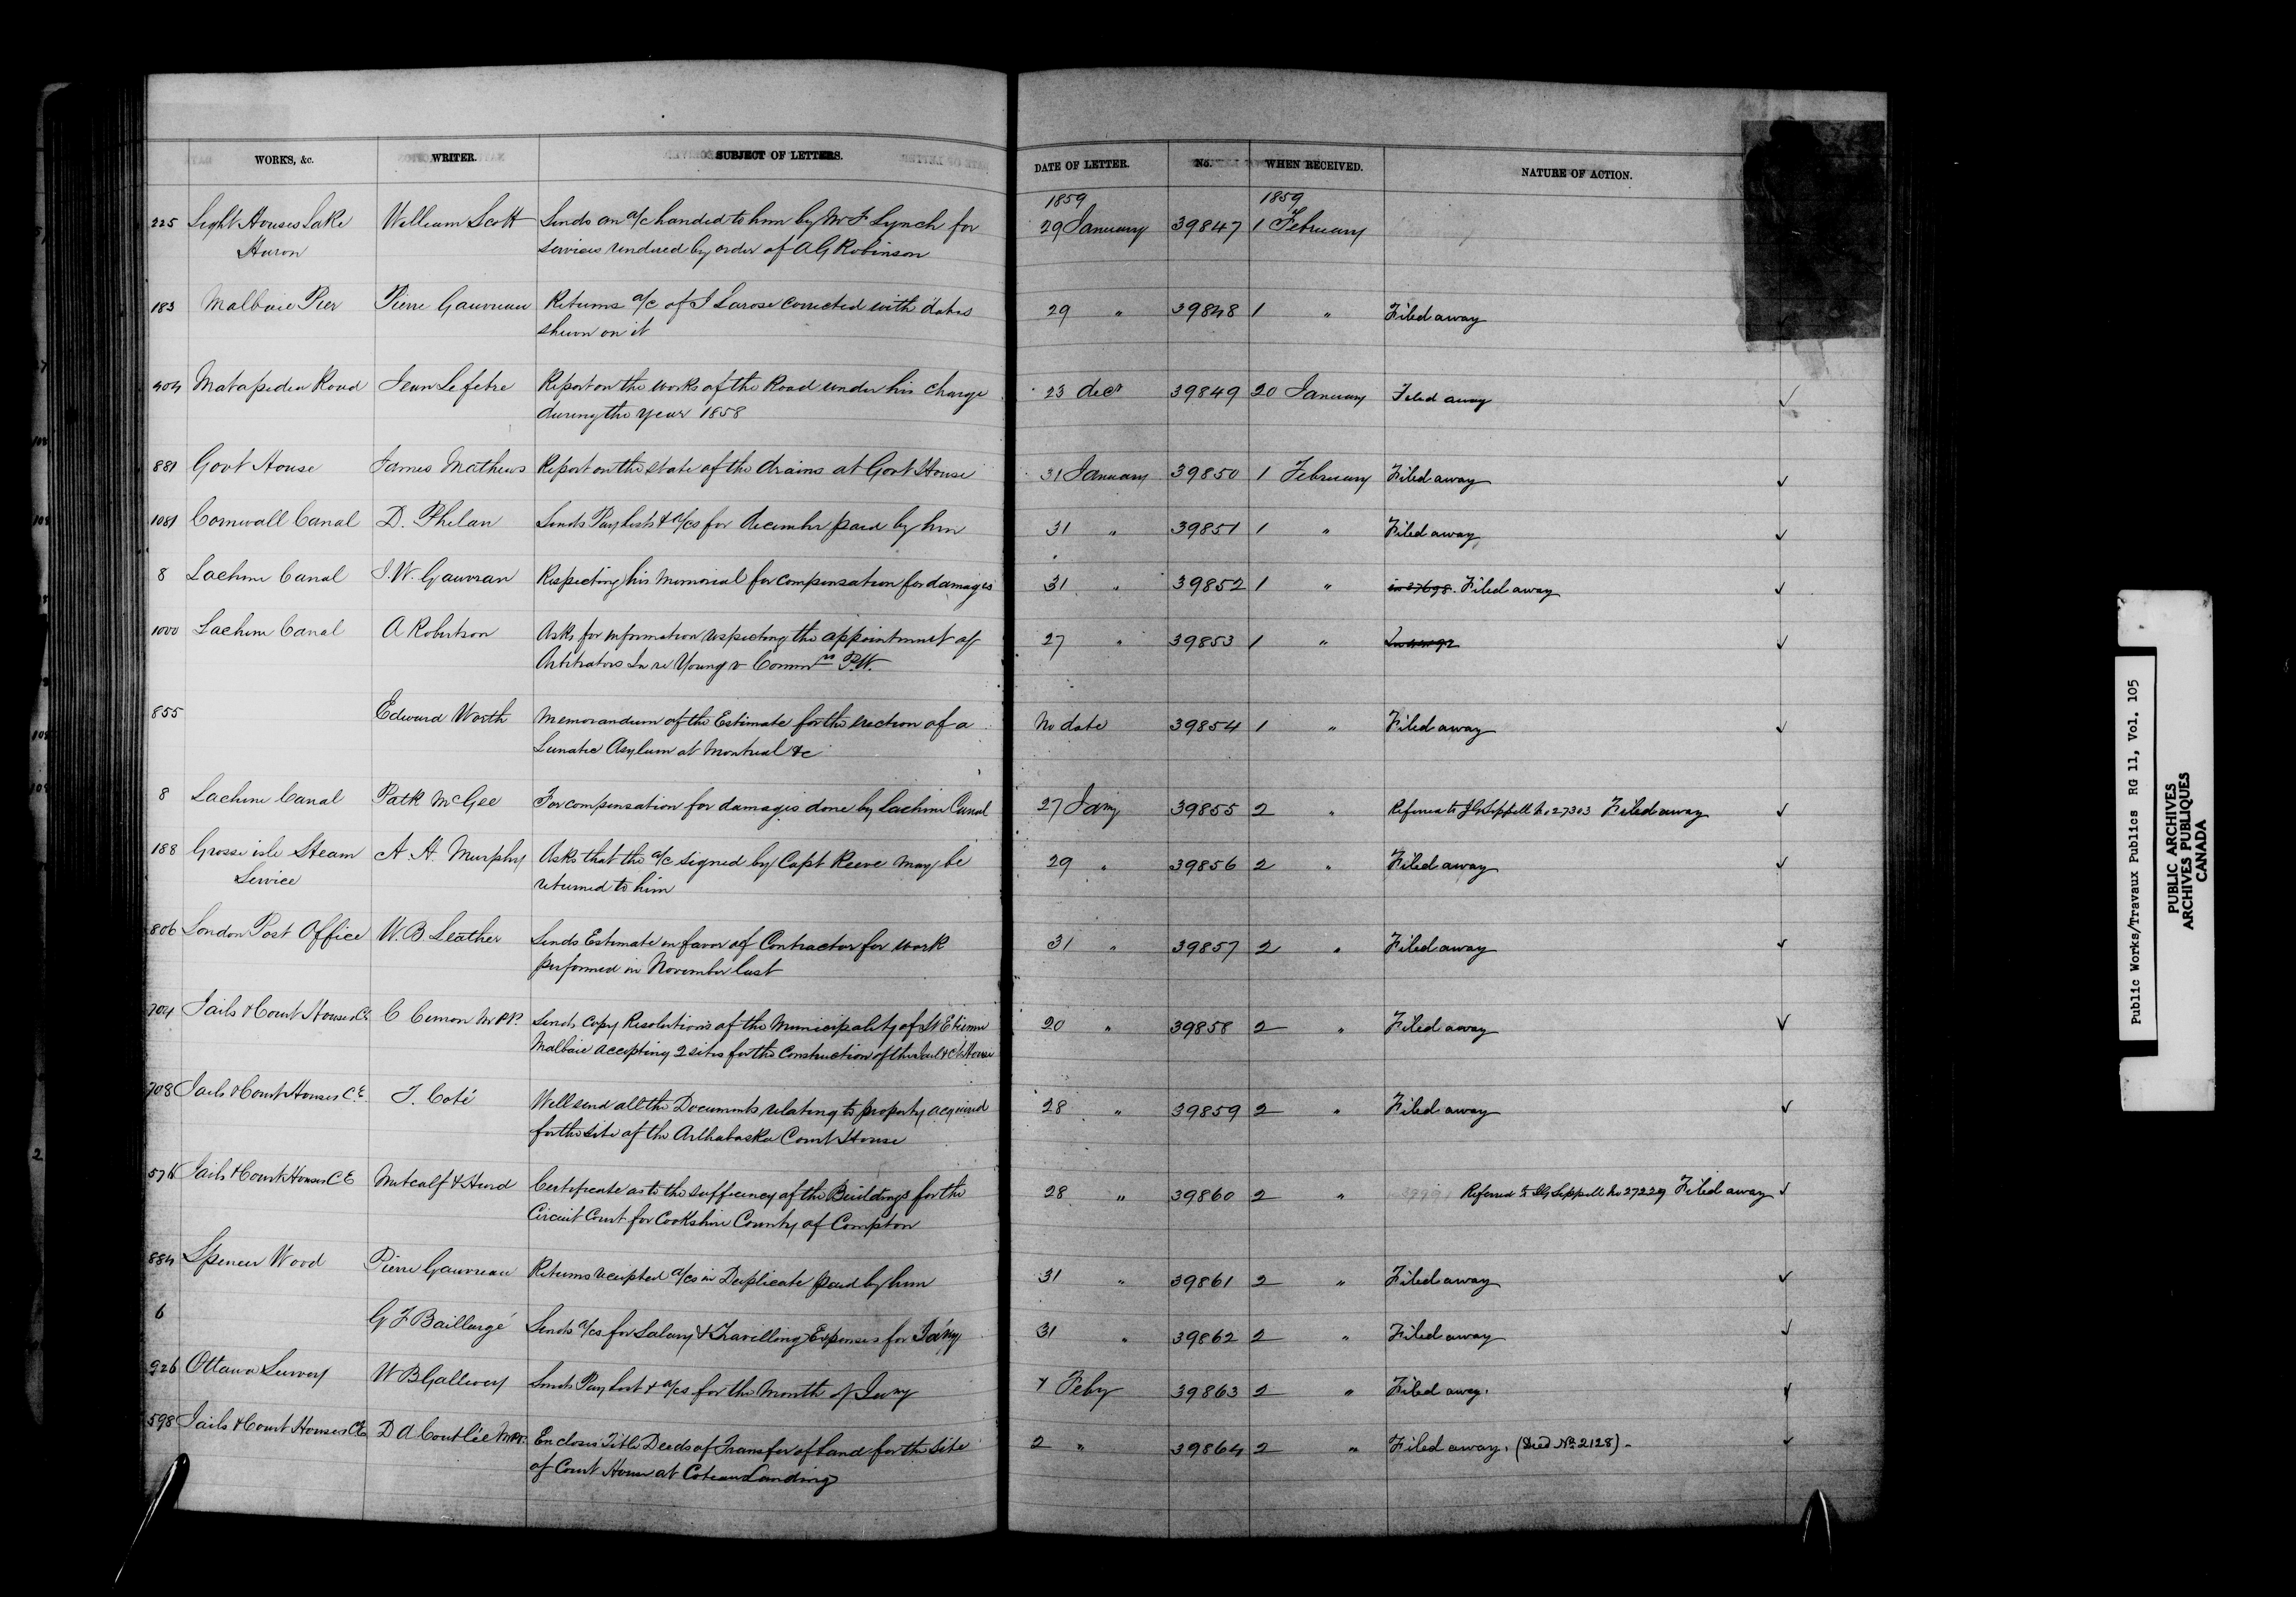 WORKS, &c. WRITER. SUBJECT OF LETTERS. DATE OF LETTER. No. WHEN RECEIVED. NATURE OF ACTION.
1859 1859
225 Light Houses Lake William Scott Sends an a/c handed to him by Mr F Lynch for 29 January 39847 1 February
Huron services rendered by order of A G Robinson
183 Malbaie Pier Pierre Gauvreau Returns a/c of J Larose corrected with dates 29 " 39848 1 " Filed away
shewn on it
404 Matapedia Road Jean Lefebre Report on the works of the Road under his charge 23 decr 39849 20 January Filed away ✓
during the year 1858
881 Govt House James Mathews Report on the state of the drains at Govt House 31 January 39850 1 February Filed away ✓
1081 Cornwall Canal D. Phelan Sends Pay lists & a/cs for december paid by him 31 " 39851 1 " Filed away ✓
8 Lachine Canal J. W. Gauvran Respecting his Memorial for compensation for damages 31 " 39852 1 " in 27698. Filed away ✓
1000 Lachine Canal A Robertson Asks for information respecting the appointment of 27 " 39853 1 " ✓
Arbitrators In re Young v Commrs P.W.
855 Edward Worth Memorandum of the Estimate for the erection of a No date 39854 1 " Filed away ✓
Lunatic Asylum at Montreal &c
8 Lachine Canal Patk McGee For compensation for damages done by Lachine Canal 27 Jany 39855 2 " Referred to J G Sippell No 27303 Filed away ✓
188 Grosse isle Steam A. H. Murphy Asks that the a/c signed by Capt Reeve may be 29 " 39856 2 " Filed away ✓
Service returned to him
806 London Post Office W. B Leather Sends Estimate in favor of Contractor for work 31 " 39857 2 " Filed away ✓
performed in November last
704 Jails & Court Houses C.E. C Cimon M.P.P. Sends Copy Resolutions of the Municipality of St Etienne 20 " 39858 2 " Filed away ✓
Malbaie accepting 2 sites for the Construction of the Jail & Ct House
708 Jails & Court Houses C.E. J. Coté Will send all the Documents relating to property acquired 28 " 39859 2 " Filed away ✓
for the site of the Arthabaska Court House
576 Jails & Court Houses C E Metcalf & Hurd Certificate as to the sufficiency of the Buildings for the 28 " 39860 2 " Referred to J G Sippell No 27229 Filed away ✓
Circuit Court for Cookshire County of Compton
884 Spencer Wood Pierre Gauvreau Returns receipted a/cs in Duplicate paid by him 31 " 39861 2 " Filed away ✓
6 G F Baillargé Sends a/cs for Salary & Travelling Expenses for Jany 31 " 39862 2 " Filed away ✓
926 Ottawa Survey W B Gallwey Sends Pay list & a/cs for the Month of Jany Feby 39863 2 " Filed away. ✓
598 Jails & Court Houses CE D A Coutlée MPP. Encloses Title Deeds of Transfer of Land for the Site 2 " 39864 2 " Filed away. (Deed No 2128) ✓
of Court House at Coteau Landing
Public Works/Travaux Publics RG 11, Vol. 105
PUBLIC ARCHIVES
ARCHIVES PUBLIQUES
CANADA